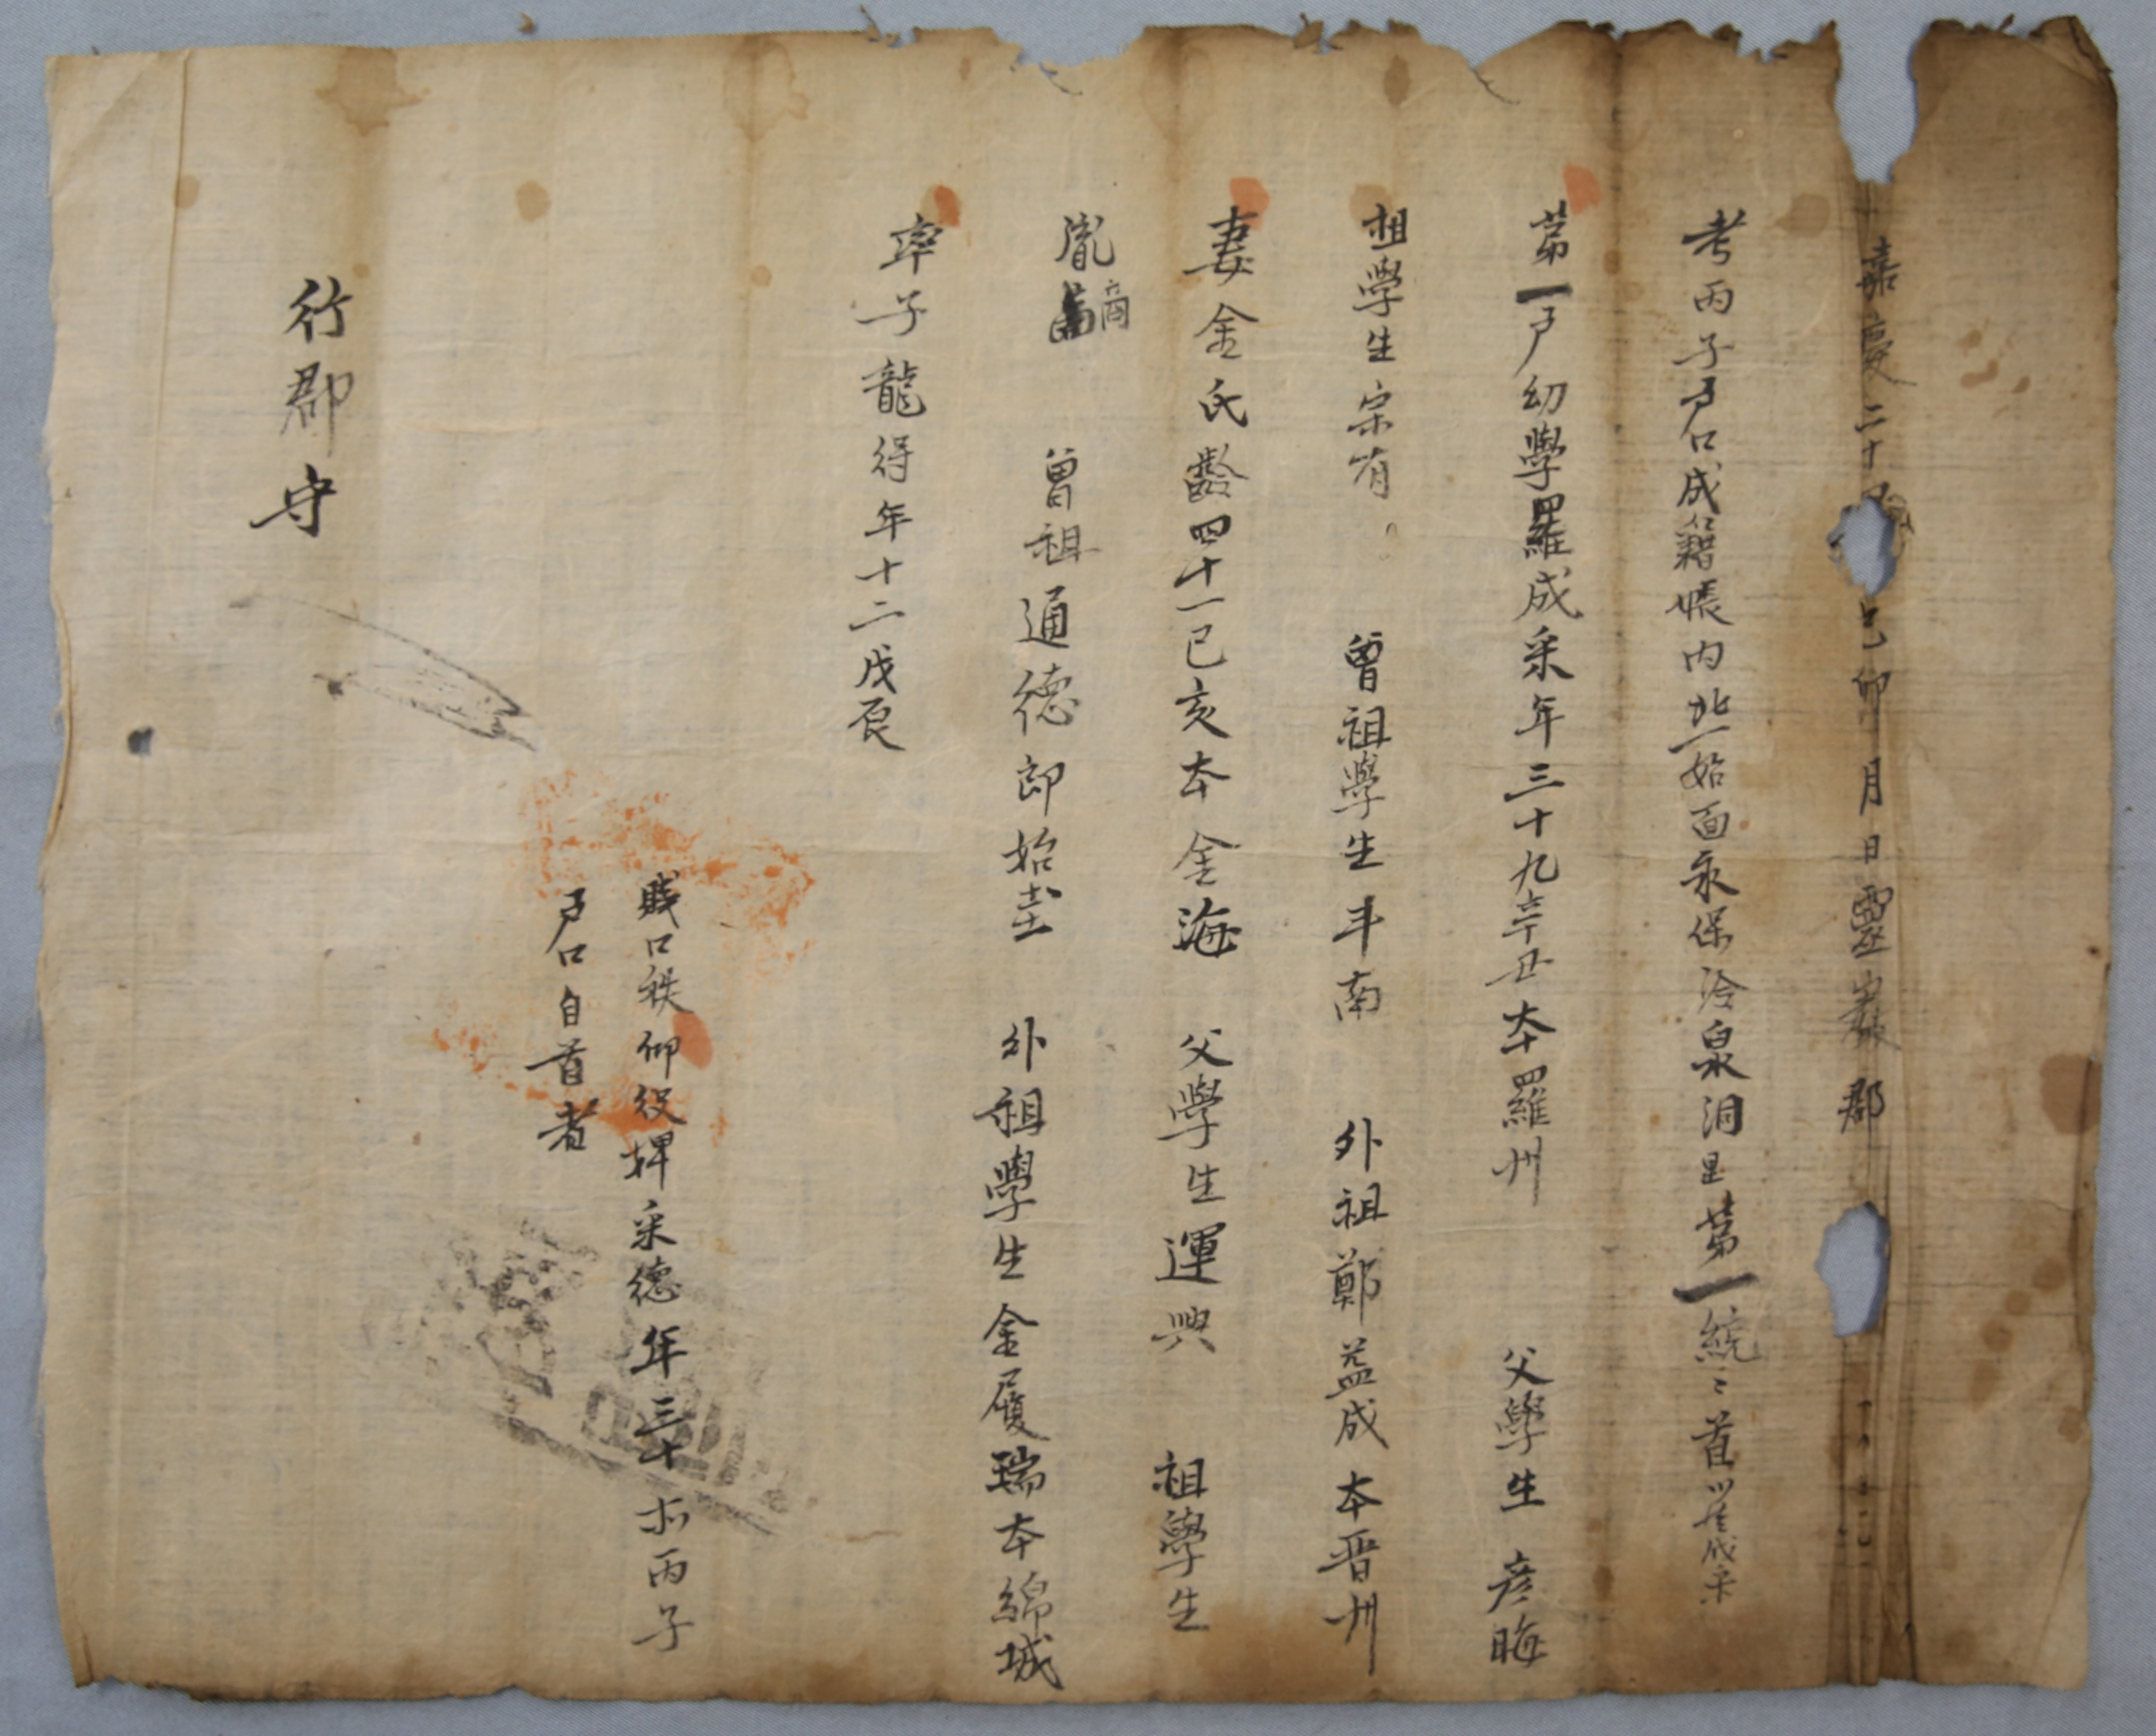 嘉慶二十四 己卯 月 日 靈巖郡
考丙子戶口成籍帳內北一始面永保冷泉洞里第一統二首羅成采
第一戶幼學羅成采年三十九辛丑本羅州 父學生 彦晦
祖學生宗有 曾祖學生斗南 外祖鄭益成本晋州
妻金氏齡四十一己亥本金海 父學生運興 祖學生
胤商 曾祖通德郎始 外祖學生金履瑞本綿城
率子龍得年十二戊辰
賤口秩仰役婢采德年三十 丙子
戶口自首者
行郡守